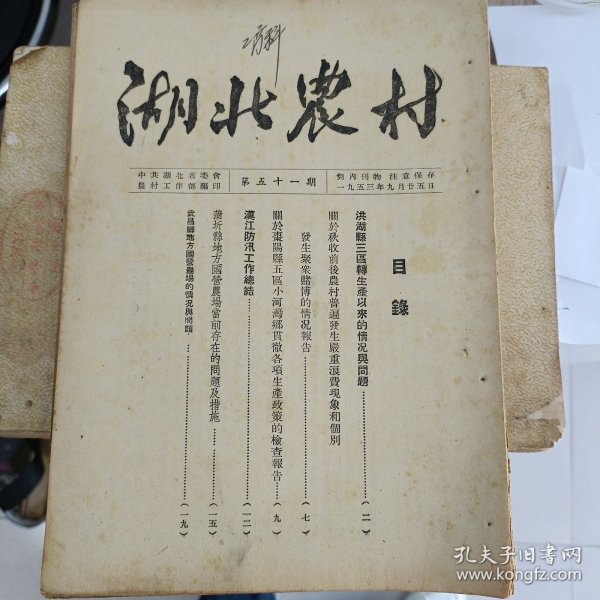 湖北農村
中共湖北省委會
農村工作部編印
第五十一期
對內刊物 注意保存
一九五三年九月廿五日
目錄
洪湖縣三區轉生產以來的情况與問題…………(二)
關於秋收前後農村普遍發生嚴重浪費現象和個別
發生聚衆賭博的情况報告…………(七)
關於棗陽縣五區小河灣鄉貫徹各項生產政策的檢查報告…(九)
漢江防汛工作總結…………(一二)
蒲圻縣地方國營農場當前存在的問題及措施…………(一五)
武昌縣地方國營農場的情况與問題…………(一九)
孔夫子旧书网
www.kongfz.com